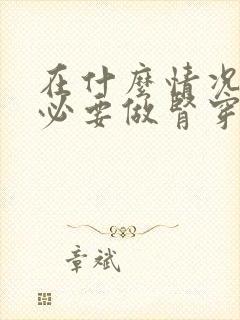 在什麼情況
必要做腎穿
章斌